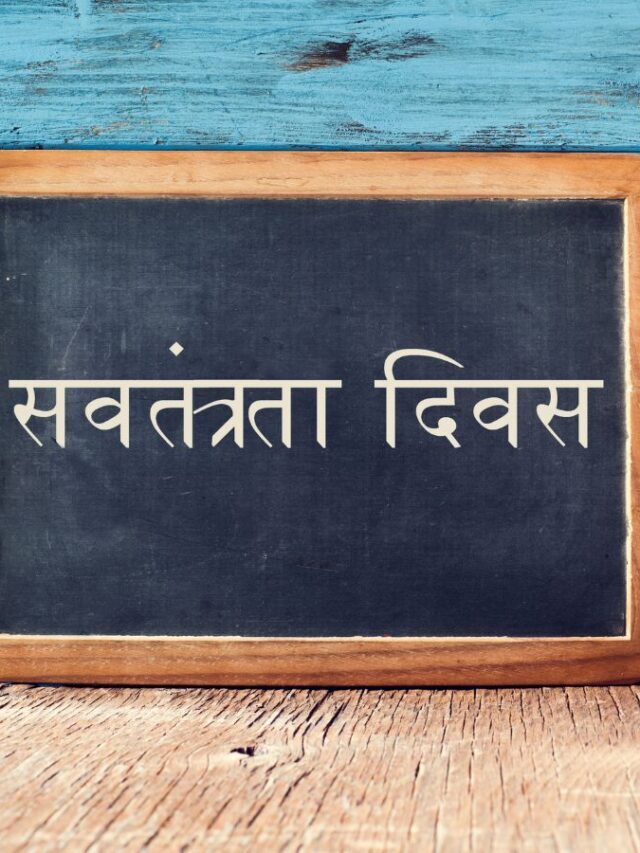 सवतंत्रता दिवस